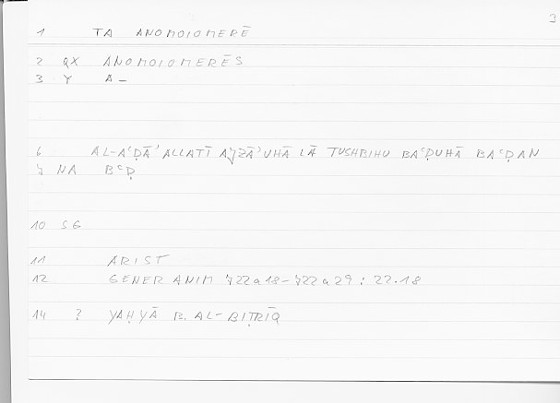 3
1 TA ANOMOIOMERĒ
2 QX ANOMOIOMERĒS
3 Y A–
6 AL-AʿḌĀʾ ALLATĪ AǦZĀʾUHĀ LĀ TUSHBIHU BAʿḌUHĀ BAʿḌAN
7 NA BʿḌ
10 SG
11 ARIST
12 GENER ANIM 722a18-722a29 : 22.18
14 ? YAḤYĀ B. AL-BIṬRĪQ